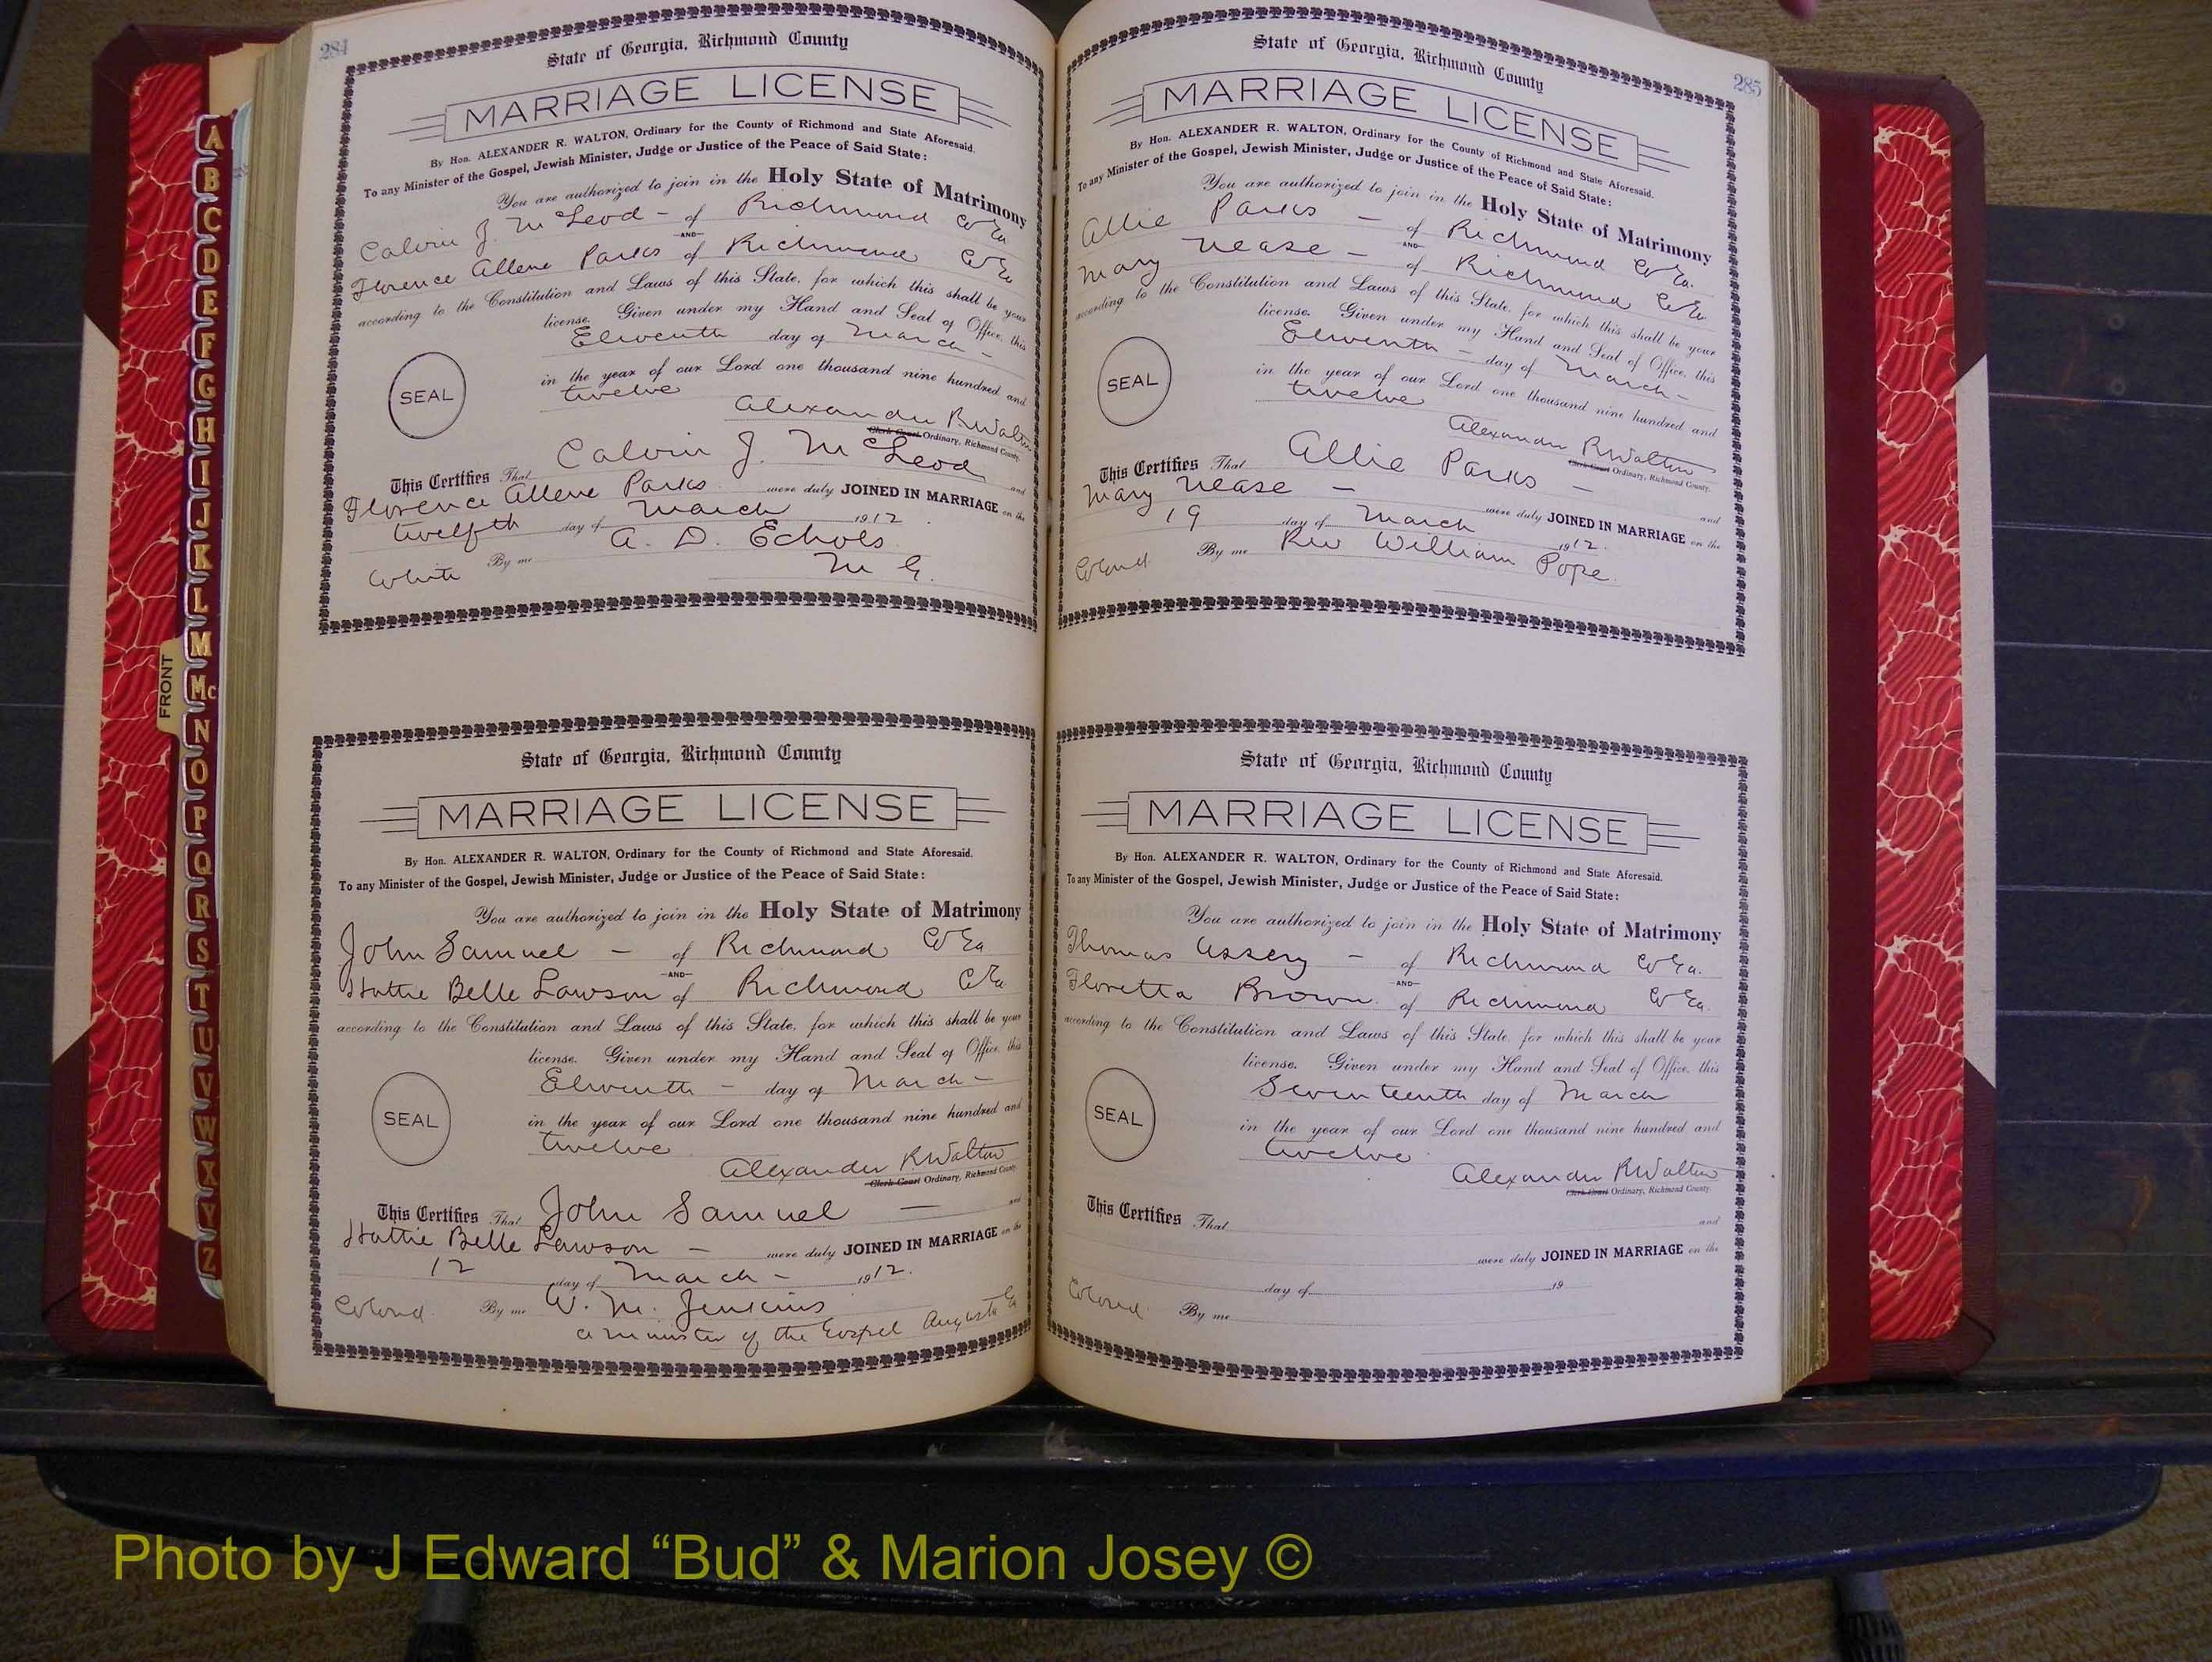 284
State of Georgia, Richmond County
MARRIAGE LICENSE
By Hon. ALEXANDER R. WALTON, Ordinary for the County of Richmond and State Aforesaid.
To any Minister of the Gospel, Jewish Minister, Judge or Justice of the Peace of Said State:
You are authorized to join in the Holy State of Matrimony
Calvin J. McLeod - of Richmond Co Ga
AND
Florence Allene Parks of Richmond Co Ga
according to the Constitution and Laws of this State, for which this shall be your
license. Given under my Hand and Seal of Office, this
Eleventh day of March -
SEAL
in the year of our Lord one thousand nine hundred and
twelve
Alexander R Walton
Clerk Court Ordinary, Richmond County.
This Certifies That Calvin J. McLeod and
Florence Allene Parks were duly JOINED IN MARRIAGE on the
twelfth day of March 1912.
By me A. D. Echols
White M G.
State of Georgia, Richmond County
MARRIAGE LICENSE
By Hon. ALEXANDER R. WALTON, Ordinary for the County of Richmond and State Aforesaid.
To any Minister of the Gospel, Jewish Minister, Judge or Justice of the Peace of Said State:
You are authorized to join in the Holy State of Matrimony
John Samuel - of Richmond Co Ga
AND
Hattie Belle Lawson of Richmond C Ga
according to the Constitution and Laws of this State, for which this shall be your
license. Given under my Hand and Seal of Office, this
Eleventh - day of March -
SEAL
in the year of our Lord one thousand nine hundred and
twelve
Alexander R Walton
Clerk Court Ordinary, Richmond County.
This Certifies That John Samuel - and
Hattie Belle Lawson - were duly JOINED IN MARRIAGE on the
12 day of March - 1912.
Colored. By me W. M. Jenkins
a minister of the Gospel Augusta Ga
285
State of Georgia, Richmond County
MARRIAGE LICENSE
By Hon. ALEXANDER R. WALTON, Ordinary for the County of Richmond and State Aforesaid.
To any Minister of the Gospel, Jewish Minister, Judge or Justice of the Peace of Said State:
You are authorized to join in the Holy State of Matrimony
Allie Parks - of Richmond Co Ga.
AND
Mary Nease - of Richmond Co Ga
according to the Constitution and Laws of this State, for which this shall be your
license. Given under my Hand and Seal of Office, this
Eleventh - day of March -
SEAL
in the year of our Lord one thousand nine hundred and
twelve
Alexander R Walton
Clerk Court Ordinary, Richmond County.
This Certifies That Allie Parks - and
Mary Nease - were duly JOINED IN MARRIAGE on the
19 day of March 1912.
Colored. By me Rev William Pope.
State of Georgia, Richmond County
MARRIAGE LICENSE
By Hon. ALEXANDER R. WALTON, Ordinary for the County of Richmond and State Aforesaid.
To any Minister of the Gospel, Jewish Minister, Judge or Justice of the Peace of Said State:
You are authorized to join in the Holy State of Matrimony
Thomas Ussery - of Richmond Co Ga.
AND
Floretta Brown of Richmond Co Ga.
according to the Constitution and Laws of this State, for which this shall be your
license. Given under my Hand and Seal of Office, this
Seventeenth day of March
SEAL
in the year of our Lord one thousand nine hundred and
twelve
Alexander R Walton
Clerk Court Ordinary, Richmond County.
This Certifies That and
were duly JOINED IN MARRIAGE on the
day of 19
Colored. By me
FRONT
A
B
C
D
E
F
G
H
I
J
K
L
M
Mc
N
O
P
Q
R
S
T
U
V
W
X
Y
Z
Photo by J Edward “Bud” & Marion Josey ©